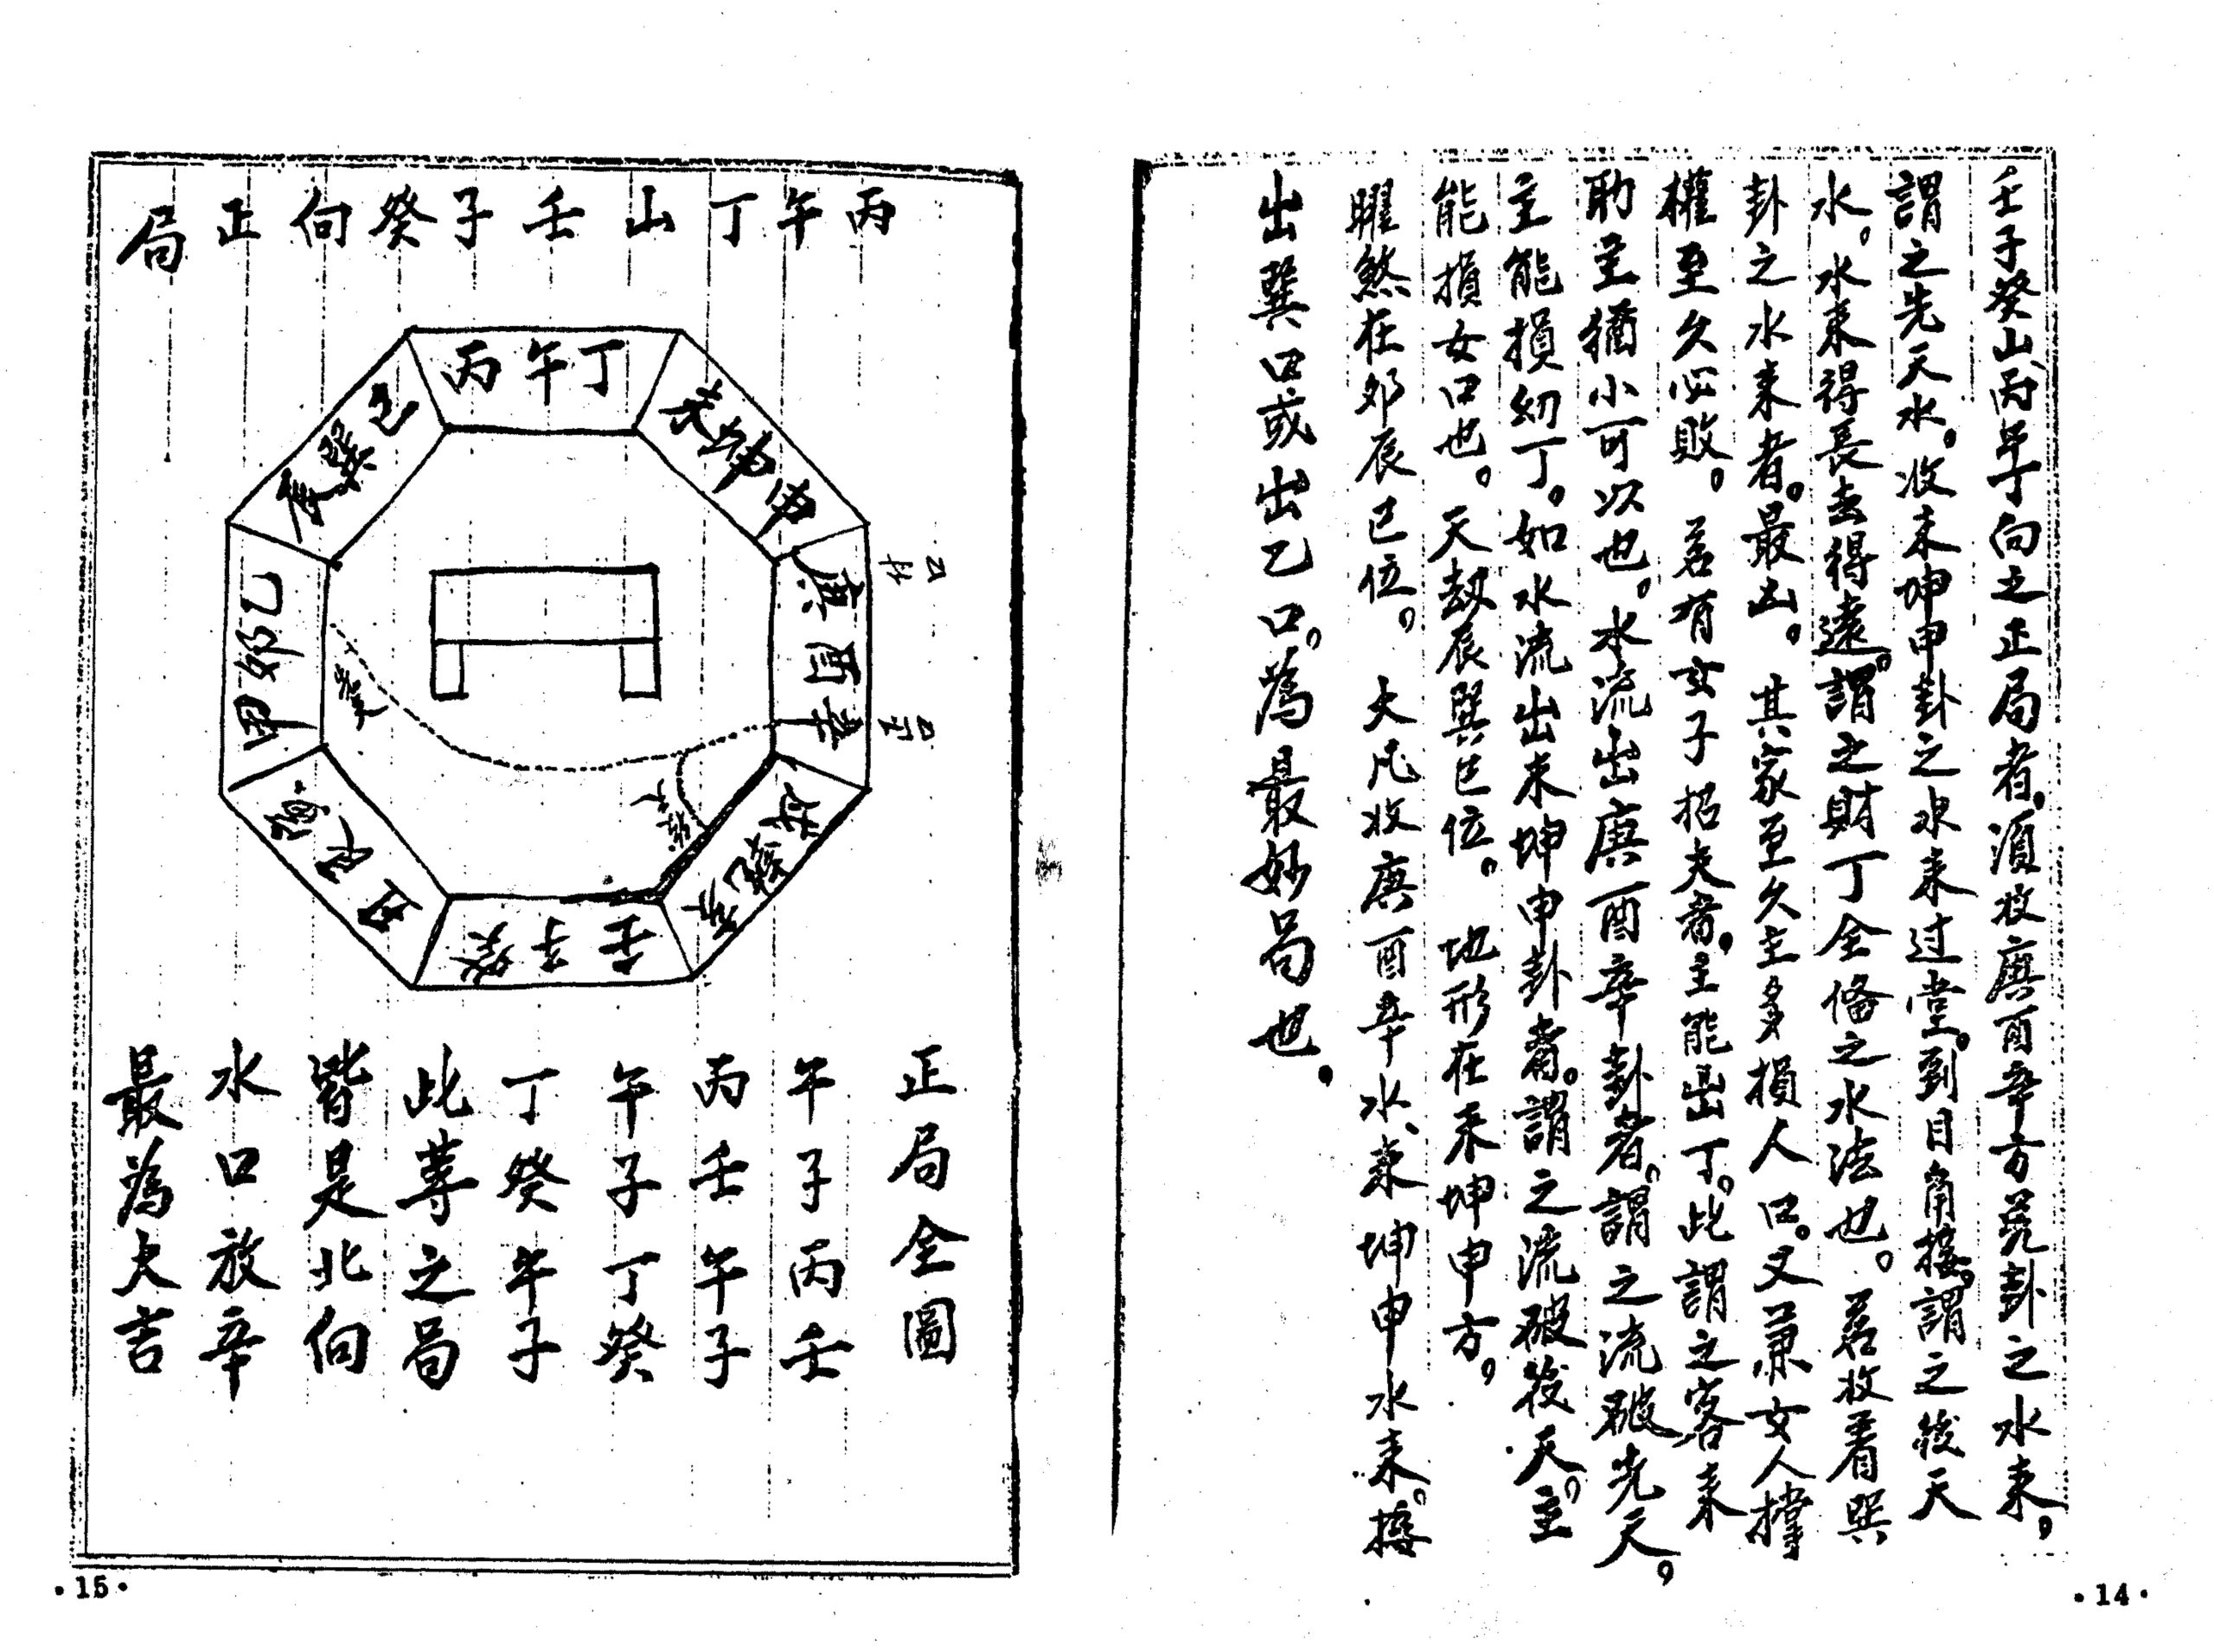 壬子癸山、丙午丁向之正局者。須收庚酉辛方兌卦之水來。
謂之先天水。收未坤申卦之水來过堂。到目角接。謂之後天
水。水來得長去得遠。謂之財丁全備之水法也。若收着巽
卦之水來者。最凶。其家至久主多損人口。又兼女人撑
權至久必敗。若有女子招夫者。主能出丁。此謂之客來
助主猶小可以也。水流出庚酉辛卦者。謂之流破先天。
主能損幼丁。如水流出未坤申卦者。謂之流破後天。主
能損女口也。天劫辰巽巳位。地形在未坤申方。
曜煞在卯辰巳位。大凡收庚酉辛水、來坤申水來。接
出巽口或出乙口。為最妙局也。
·14·
丙午丁山壬子癸向正局
丙午丁
未坤申
庚酉辛
戌乾亥
壬子癸
丑艮寅
甲卯乙
辰巽巳
來
正局全圖
午子丙壬
丙壬午子
午子丁癸
丁癸午子
此等之局
皆是北向
水口放辛
最為大吉
·15·